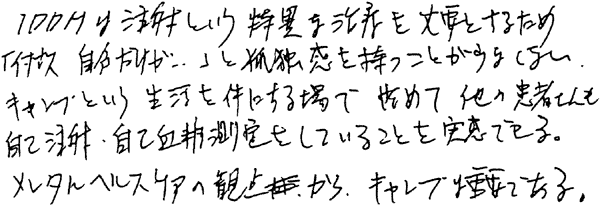 IDDMは注射という特異な治療を必要とするため
「何故自分だけが‥」と孤独感を持つことが少なくない.
キャンプという生活を伴にする場で始めて他の患者さんも
自己注射・自己血糖測定をしていることを実感できる。
メンタルヘルスケアの観点から、キャンプは重要である。